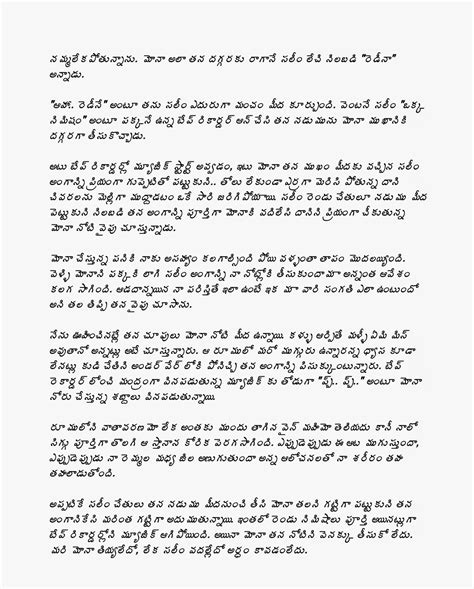 నమ్మలేకపోతున్నాను. మోనా అలా తన దగ్గరకు రాగానే సలీం లేచి నిలబడి "రెడీనా"
అన్నాడు.
"ఆహా.. రెడీనే" అంటూ తను సలీం ఎదురుగా మంచం మీద కూర్చుంది. వెంటనే సలీం "ఒక్క
నిమిషం" అంటూ పక్కనే ఉన్న టేప్ రికార్డర్ ఆన్ చేసి తన నడుమును మోనా ముఖానికి
దగ్గరగా తీసుకొచ్చాడు.
అటు టేప్ రికార్డర్లో మ్యూజిక్ స్టార్ట్ అవ్వడం, ఇటు మోనా తన ముఖం మీదకు వచ్చిన సలీం
అంగాన్ని ప్రియంగా గుప్పెటితో పట్టుకుని.. తోలు లేకుండా ఎర్రగా మెరిసి పోతున్న దాని
చివరలను మెల్లిగా ముద్దాడటం ఒకే సారి జరిగిపోయాయి. సలీం రెండు చేతులూ నడుము మీద
పెట్టుకుని నిలబడి తన అంగాన్ని పూర్తిగా మోనాకి వదిలేసి దానిని ప్రియంగా చీకుతున్న
మోనా నోటి వైపు చూస్తున్నాడు.
మోనా చేస్తున్న పనికి నాకు అసహ్యం కలగాల్సింది పోయి వళ్ళంతా తాపం మొదలయ్యింది.
వెళ్ళి మోనాని పక్కకి లాగి సలీం అంగాన్ని నా నోట్లోకి తీసుకుందామా అన్నంత ఆవేశం
కలగ సాగింది. ఆడదాన్నయిన నా పరిస్తితే ఇలా ఉంటే ఇక మా వారి సంగతి ఎలా ఉంటుందో
అని తల తిప్పి తన వైపు చూసాను.
నేను ఊహించినట్లే తన చూపులు మోనా నోటి మీద ఉన్నాయి. కళ్ళు ఆర్పితే మళ్ళీ ఏమి మిస్
అవుతానో అన్నట్లు అటే చూస్తున్నారు. ఆ రూములో మరో ముగ్గురు ఉన్నారన్న ధ్యాస కూడా
లేనట్లు కుడి చేతిని అండర్ వేర్ లోకి పోనిచ్చి తన అంగాన్ని పిసుక్కుంటున్నారు. టేప్
రికార్డర్ లోంచి మంద్రంగా వినపడుతున్న మ్యూజిక్ కు తోడుగా "ప్చ్.. ప్చ్.." అంటూ మోనా
నోరు చేస్తున్న శబ్దాలు వినపడుతున్నాయి.
రూములోని వాతావరణమో లేక అంతకు ముందు తాగిన వైన్ మహిమో తెలియదు కానీ నాలో
సిగ్గు పూర్తిగా తొలగి ఆ స్తానాన కోరిక పెరగసాగింది. ఎప్పుడెప్పుడు ఈ ఆట ముగుస్తుందా,
ఎప్పుడెప్పుడు నా రెమ్మల మధ్య జిల అణుగుతుందా అన్న ఆలోచనలతో నా శరీరం తహ
తహలాడుతోంది.
అప్పటికే సలీం చేతులు తన నడుము మీదనుంచి తీసి మోనా తలని గట్టిగా పట్టుకుని తన
అంగానికేసి మరింత గట్టిగా అదుముతున్నాయి. ఇంతలో రెండు నిమిషాలు పూర్తి అయినట్లుగా
టేప్ రికార్డర్లోని మ్యూజిక్ ఆగిపోయింది. అయినా మోనా తన నోటిని వెనక్కు తీసుకో లేదు.
మరి మోనా తియ్యలేదో, లేక సలీం వదల్లేదో అర్దం కావడంలేదు.